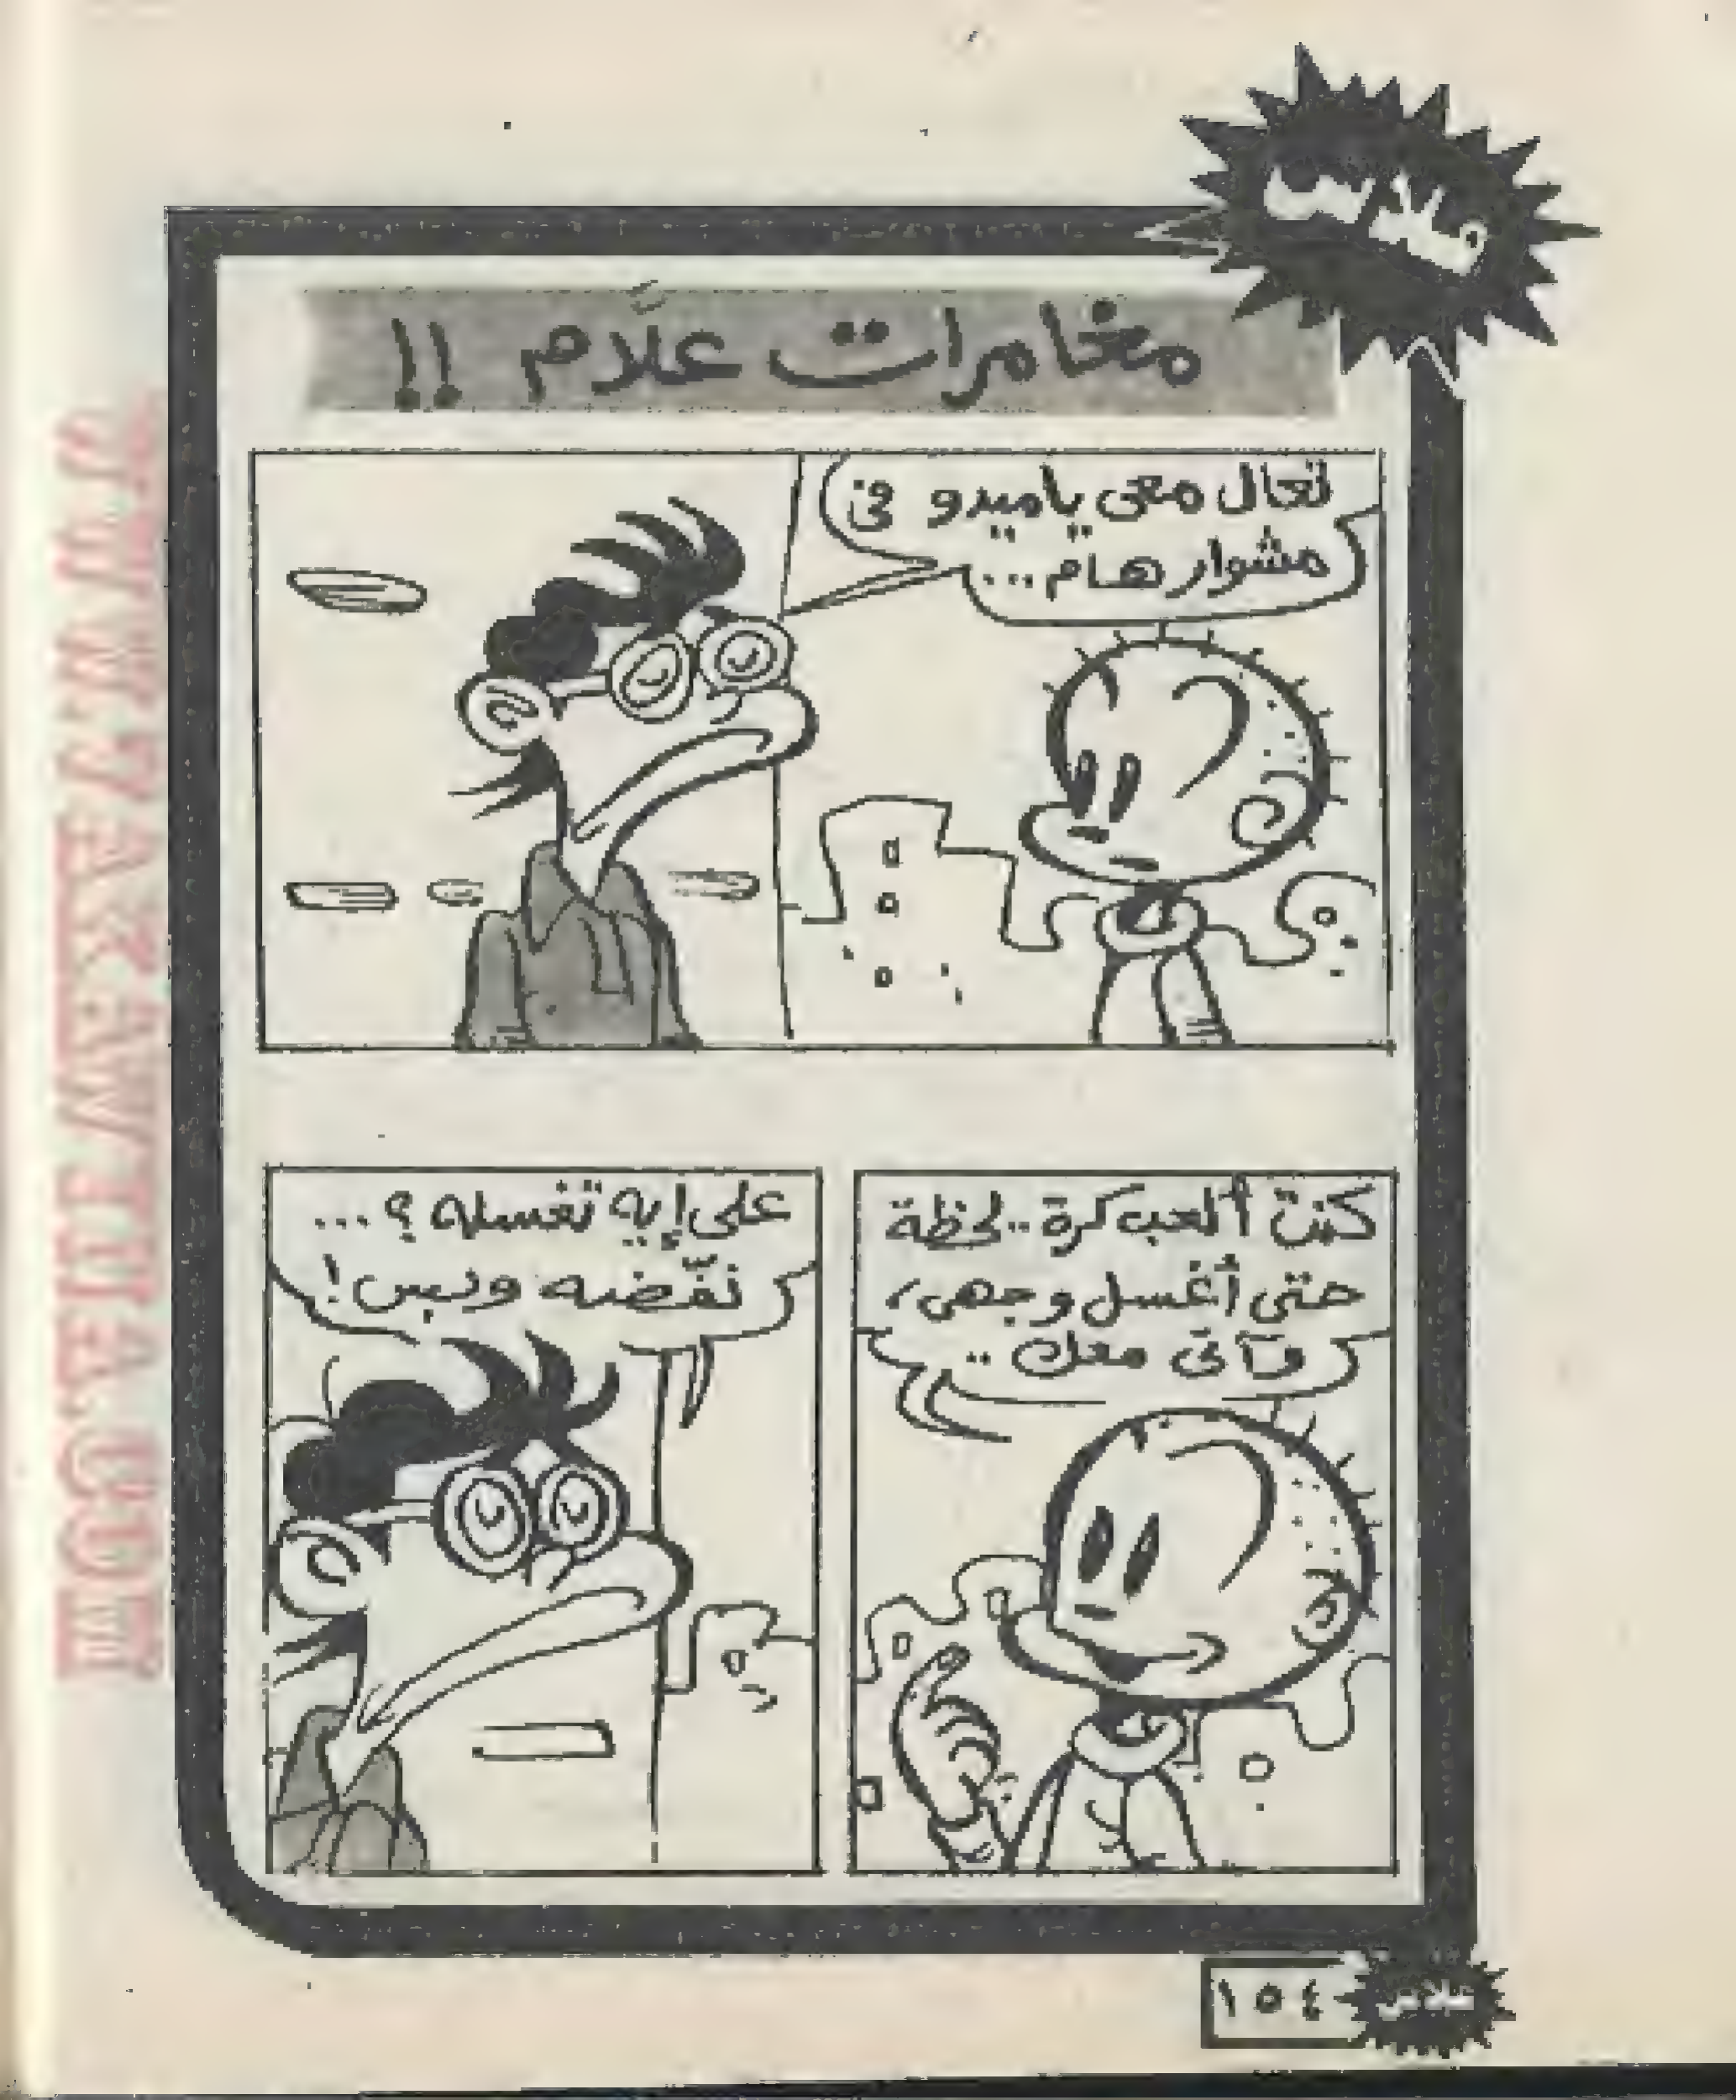 فلاش
مغامرات علَّام !!
تعال معى ياميدو فى
مشوار هام...
كنت ألعب كرة.. لحظة
حتى أغسل وجهى،
فآتى معك..
على إيه تغسله؟...
نفّضه وبس!
فلاش
١٥٤